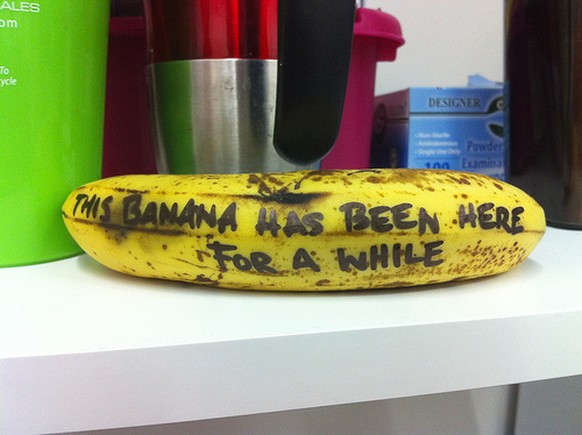 ALES
om
To
ycle
DESIGNER
Powder
Examina
100
Single Use Only
THIS BANANA HAS BEEN HERE
FOR A WHILE